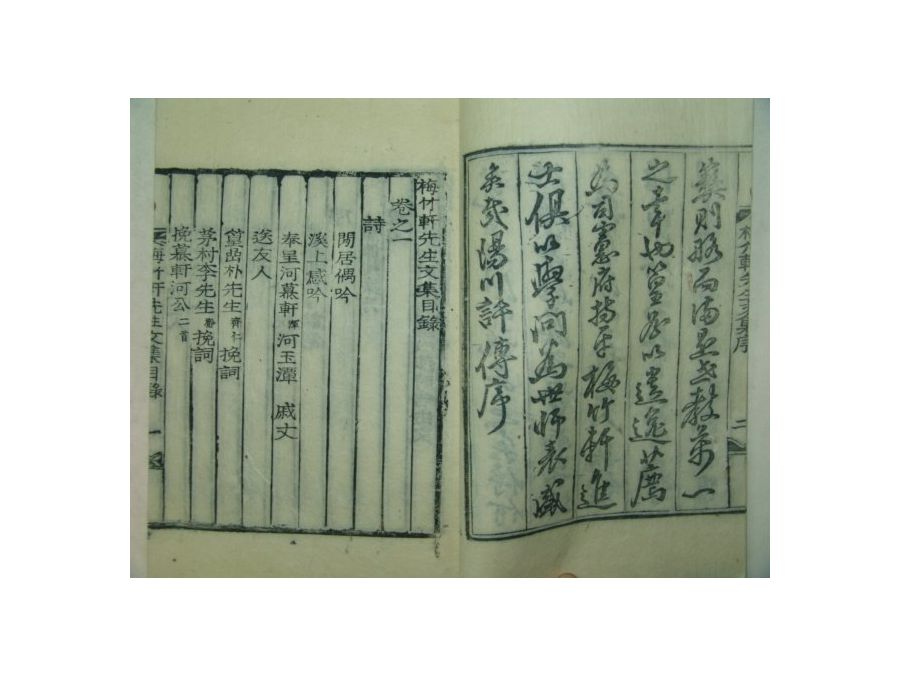 梅竹軒先生文集序 二
則 而 萬一
之幸也篁嵒以遺逸薦
爲司憲府持平梅竹軒進
士俱以學問爲世師表歲
陽川許傳序
梅竹軒先生文集目錄
卷之一
詩
閒居偶吟
溪上感吟
奉呈河慕軒渾河玉潭 戚丈
送友人
篁嵒朴先生齊仁挽詞
茅村李先生挽詞
挽慕軒河公二首
梅竹軒先生文集目錄 一